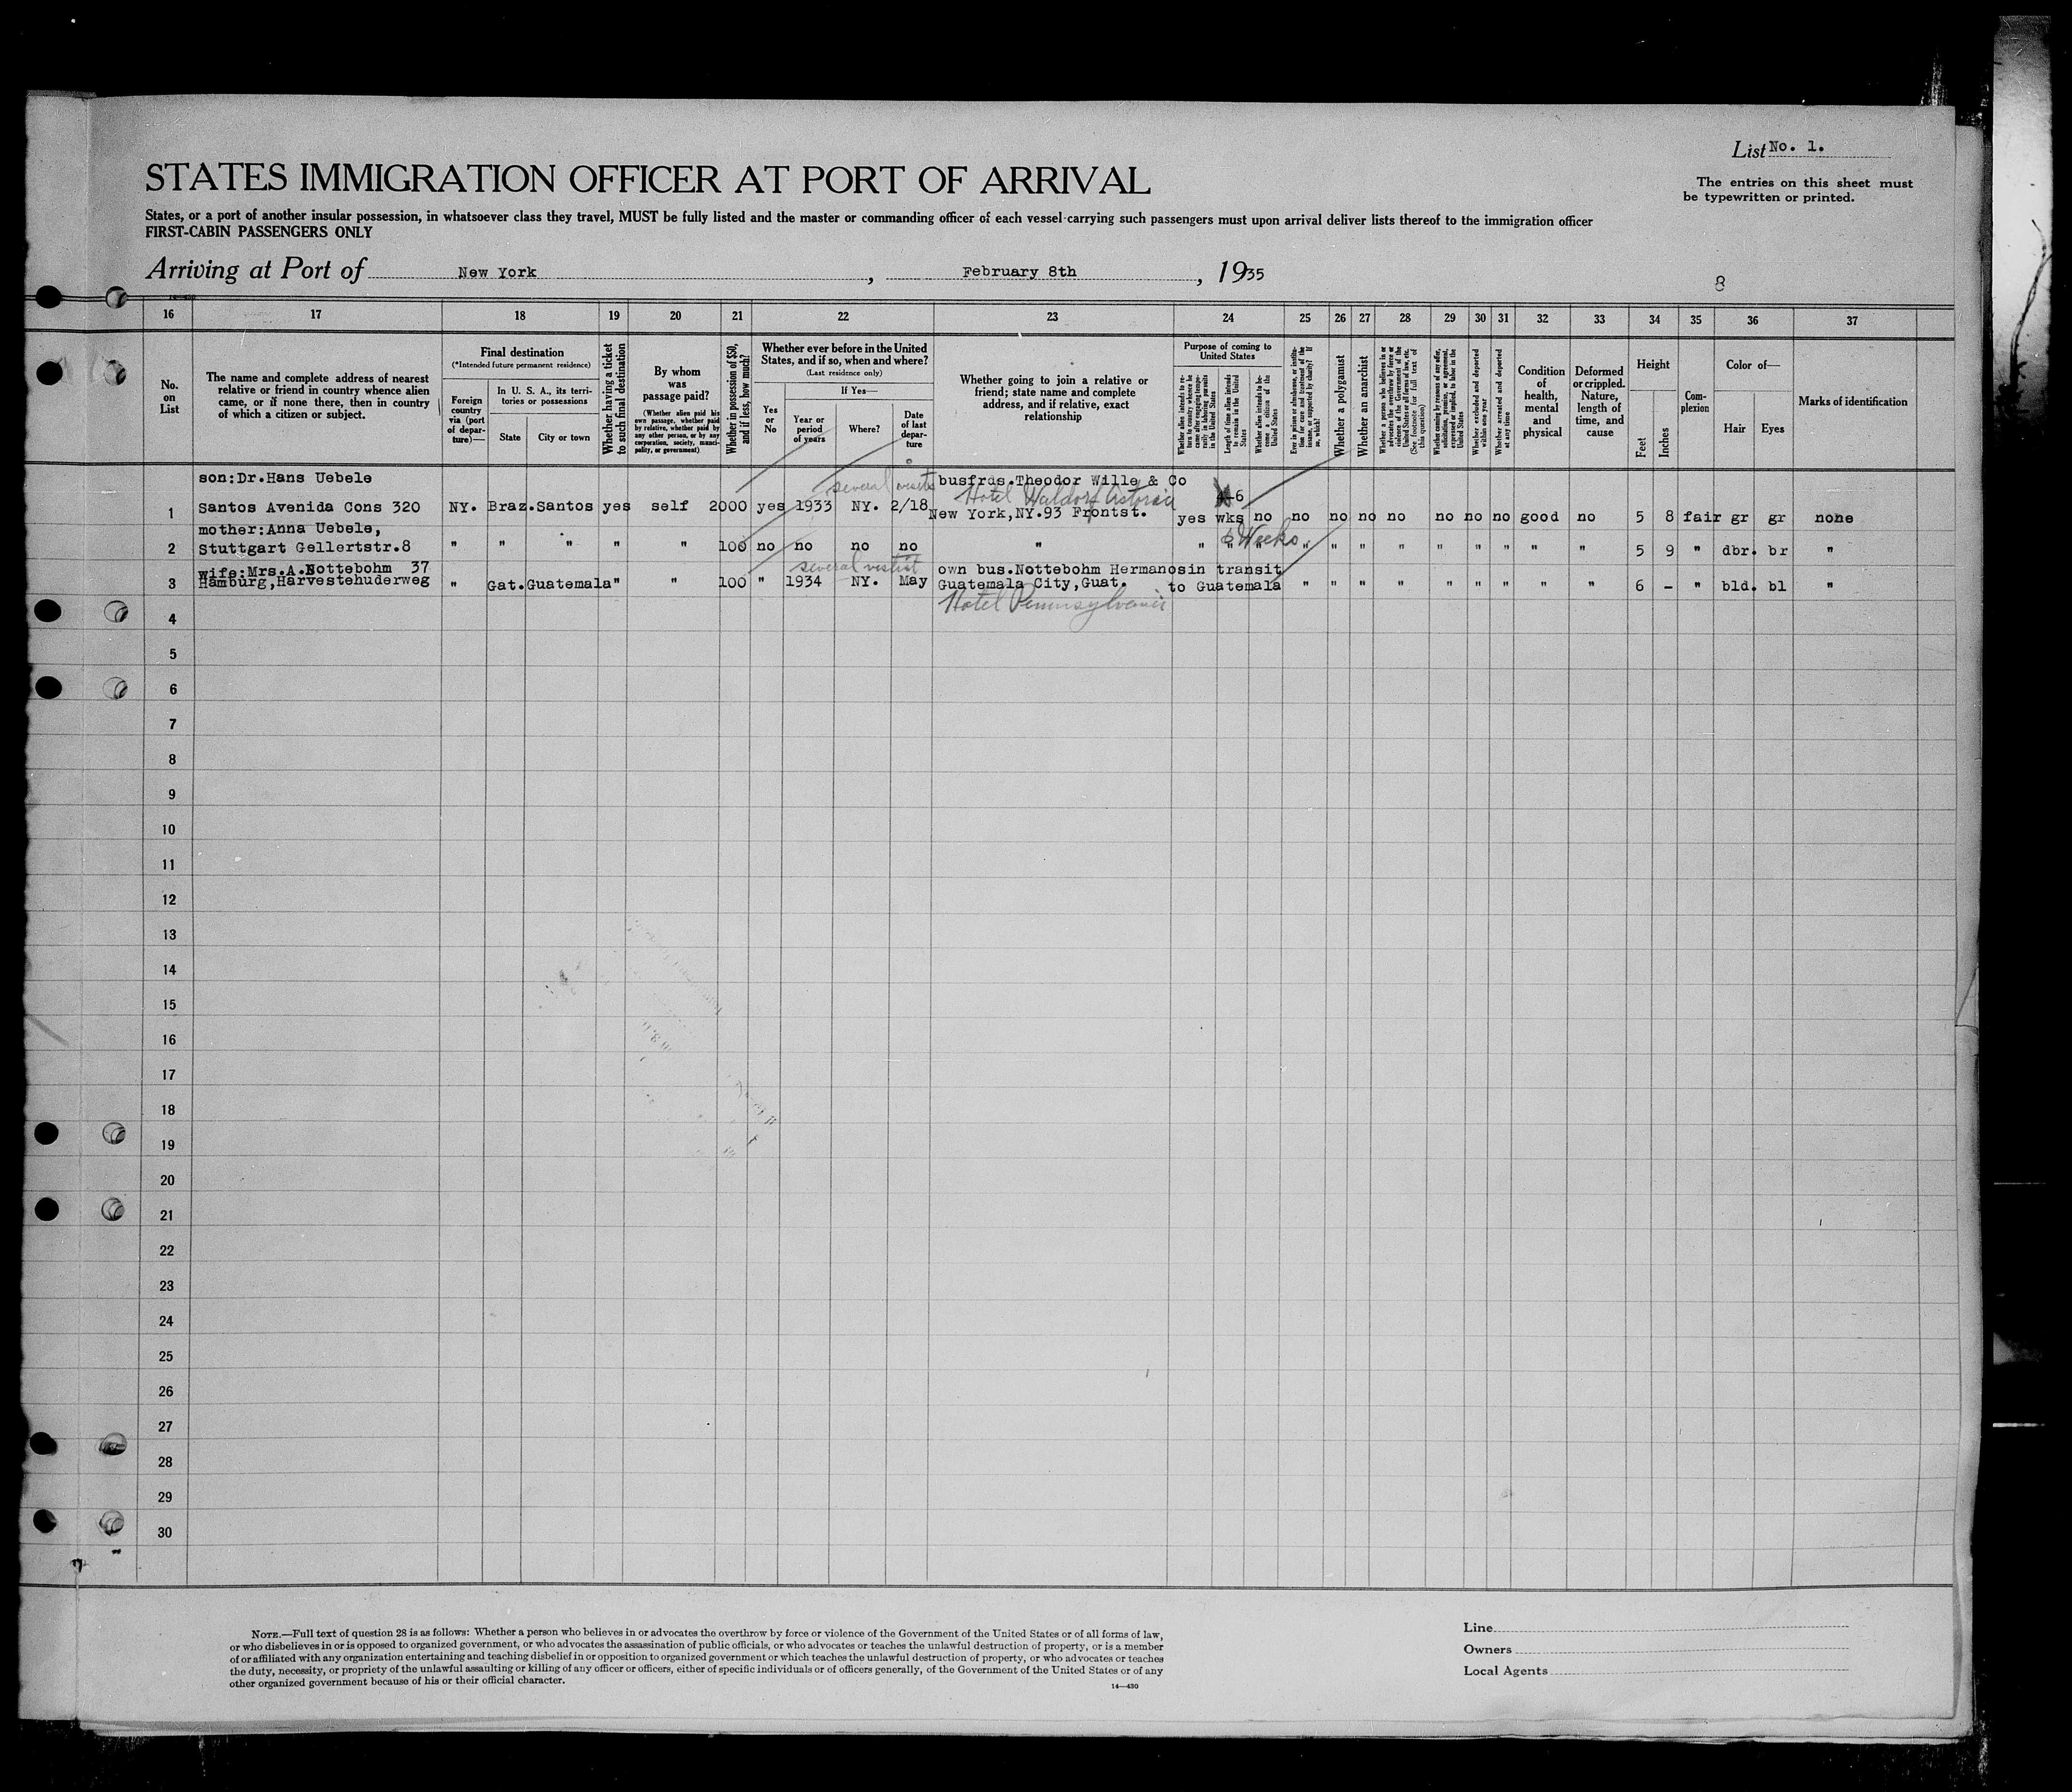 List No. 1.
STATES IMMIGRATION OFFICER AT PORT OF ARRIVAL
The entries on this sheet must
be typewritten or printed.
States, or a port of another insular possession, in whatsoever class they travel, MUST be fully listed and the master or commanding officer of each vessel carrying such passengers must upon arrival deliver lists thereof to the immigration officer
FIRST-CABIN PASSENGERS ONLY
Arriving at Port of New York, February 8th, 1935
8
16 17 18 19 20 21 22 23 24 25 26 27 28 29 30 31 32 33 34 35 36 37
No. on List
The name and complete address of nearest
relative or friend in country whence alien
came, or if none there, then in country
of which a citizen or subject.
Final destination
(*Intended future permanent residence)
Foreign country via (port of departure)—
In U. S. A., its territories or possessions
State
City or town
Whether having a ticket to such final destination
By whom was passage paid?
(Whether alien paid his own passage, whether paid by relative, whether paid by any other person, or by any corporation, society, municipality, or government)
Whether in possession of $50, and if less, how much?
Whether ever before in the United
States, and if so, when and where?
(Last residence only)
Yes or No
If Yes—
Year or period of years
Where?
Date of last departure
Whether going to join a relative or
friend; state name and complete
address, and if relative, exact
relationship
Purpose of coming to United States
Whether alien intends to return to country whence he came after engaging temporarily in laboring pursuits in the United States
Length of time alien intends to remain in the United States
Whether alien intends to become a citizen of the United States
Ever in prison or almshouse, or institution for care and treatment of the insane, or supported by charity? If so, which?
Whether a polygamist
Whether an anarchist
Whether a person who believes in or advocates the overthrow by force or violence of the Government of the United States or all forms of law, etc. (See footnote for full text of this question)
Whether coming by reasons of any offer, solicitation, promise, or agreement, expressed or implied, to labor in the United States
Whether excluded and deported within one year
Whether arrested and deported at any time
Condition of health, mental and physical
Deformed or crippled. Nature, length of time, and cause
Height
Feet
Inches
Complexion
Color of—
Hair
Eyes
Marks of identification
son:Dr.Hans Uebele several visits busfrds.Theodor Wille & Co
Hotel Waldorf Astoria
1 Santos Avenida Cons 320 NY. Braz.Santos yes self 2000 yes 1933 NY. 2/18 New York,NY.93 Frontst. yes 4-6 wks no no no no no no no no good no 5 8 fair gr gr none
mother:Anna Uebele,
2 Stuttgart Gellertstr.8 " " " " " 100 no no no no " " 6 Weeks " " " " " " " " " " 5 9 " dbr. br "
several visits
wife:Mrs.A.Nottebohm 37 own bus.Nottebohm Hermanos in transit
3 Hamburg,Harvestehuderweg " Gat.Guatemala " " 100 " 1934 NY. May Guatemala City,Guat. to Guatemala " " " " " " " " " 6 - " bld. bl "
Hotel Pennsylvania
4
5
6
7
8
9
10
11
12
13
14
15
16
17
18
19
20
21
22
23
24
25
26
27
28
29
30
NOTE.—Full text of question 28 is as follows: Whether a person who believes in or advocates the overthrow by force or violence of the Government of the United States or of all forms of law,
or who disbelieves in or is opposed to organized government, or who advocates the assassination of public officials, or who advocates or teaches the unlawful destruction of property, or is a member
of or affiliated with any organization entertaining and teaching disbelief in or opposition to organized government or which teaches the unlawful destruction of property, or who advocates or teaches
the duty, necessity, or propriety of the unlawful assaulting or killing of any officer or officers, either of specific individuals or of officers generally, of the Government of the United States or of any
other organized government because of his or their official character.
14—430
Line
Owners
Local Agents